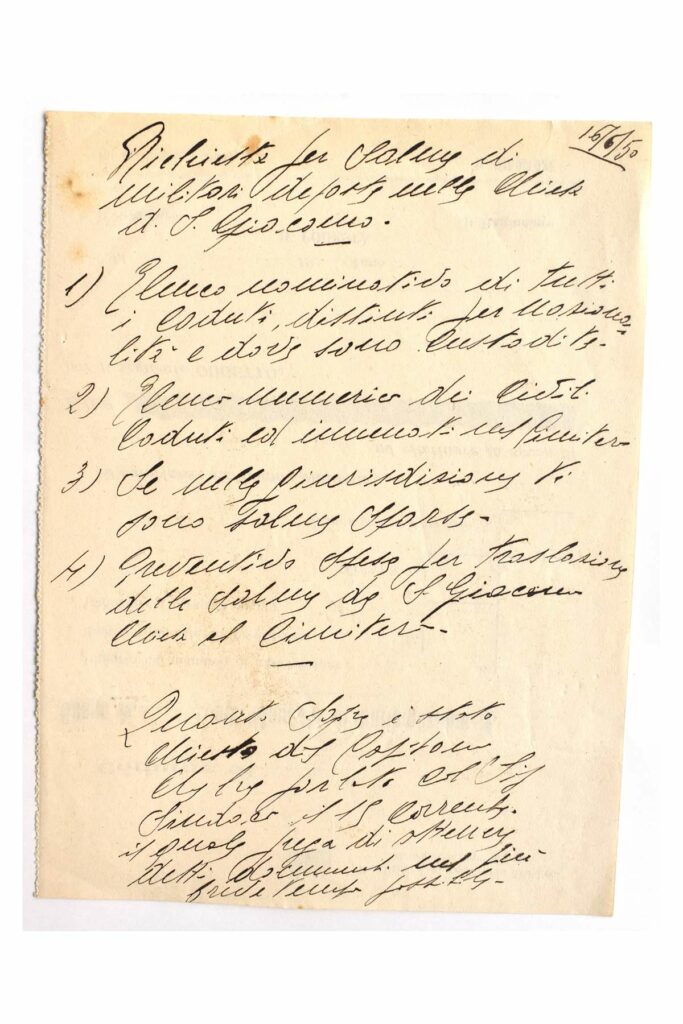 16/6/50
Richiesta per Salme di
militari deposte nella Chiesa
di S. Giacomo.
1) Elenco nominativo di tutti
i Caduti, distinti per naziona-
lità e dove sono Custodite.
2) Elenco numerico dei Civili
Caduti ed inumati nel Cimitero
3) Se nella Giurisdizione vi
sono salme sparse.
4) Preventivo spesa per traslazione
delle Salme da S. Giacomo
Chiesa al Cimitero.
Quanto sopra è stato
chiesto dal Capitano
che ha parlato col Sig
Sindaco il 15 Corrente.
il quale prega di ottenere
detti documenti nel più
breve tempo possibile.